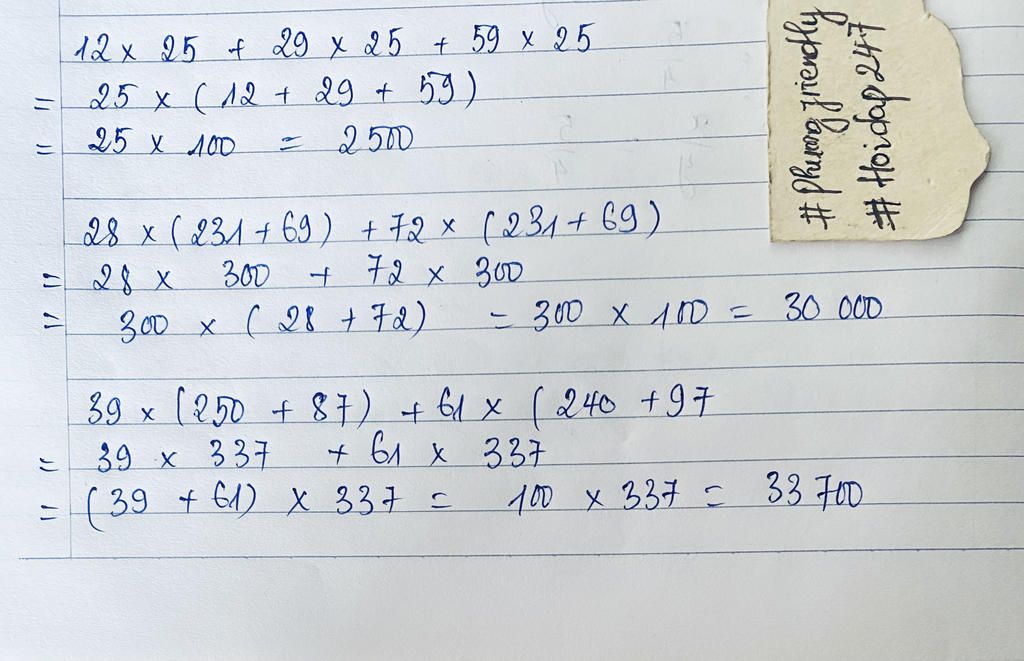 12 x 25 + 29 x 25 + 59 x 25
= 25 x (12 + 29 + 59)
= 25 x 100 = 2500
28 x (231 + 69) + 72 x (231 + 69)
= 28 x 300 + 72 x 300
= 300 x (28 + 72) = 300 x 100 = 30 000
39 x (250 + 87) + 61 x (240 + 97
= 39 x 337 + 61 x 337
= (39 + 61) x 337 = 100 x 337 = 33 700
#Phuongzfriendly
#Hoidap247